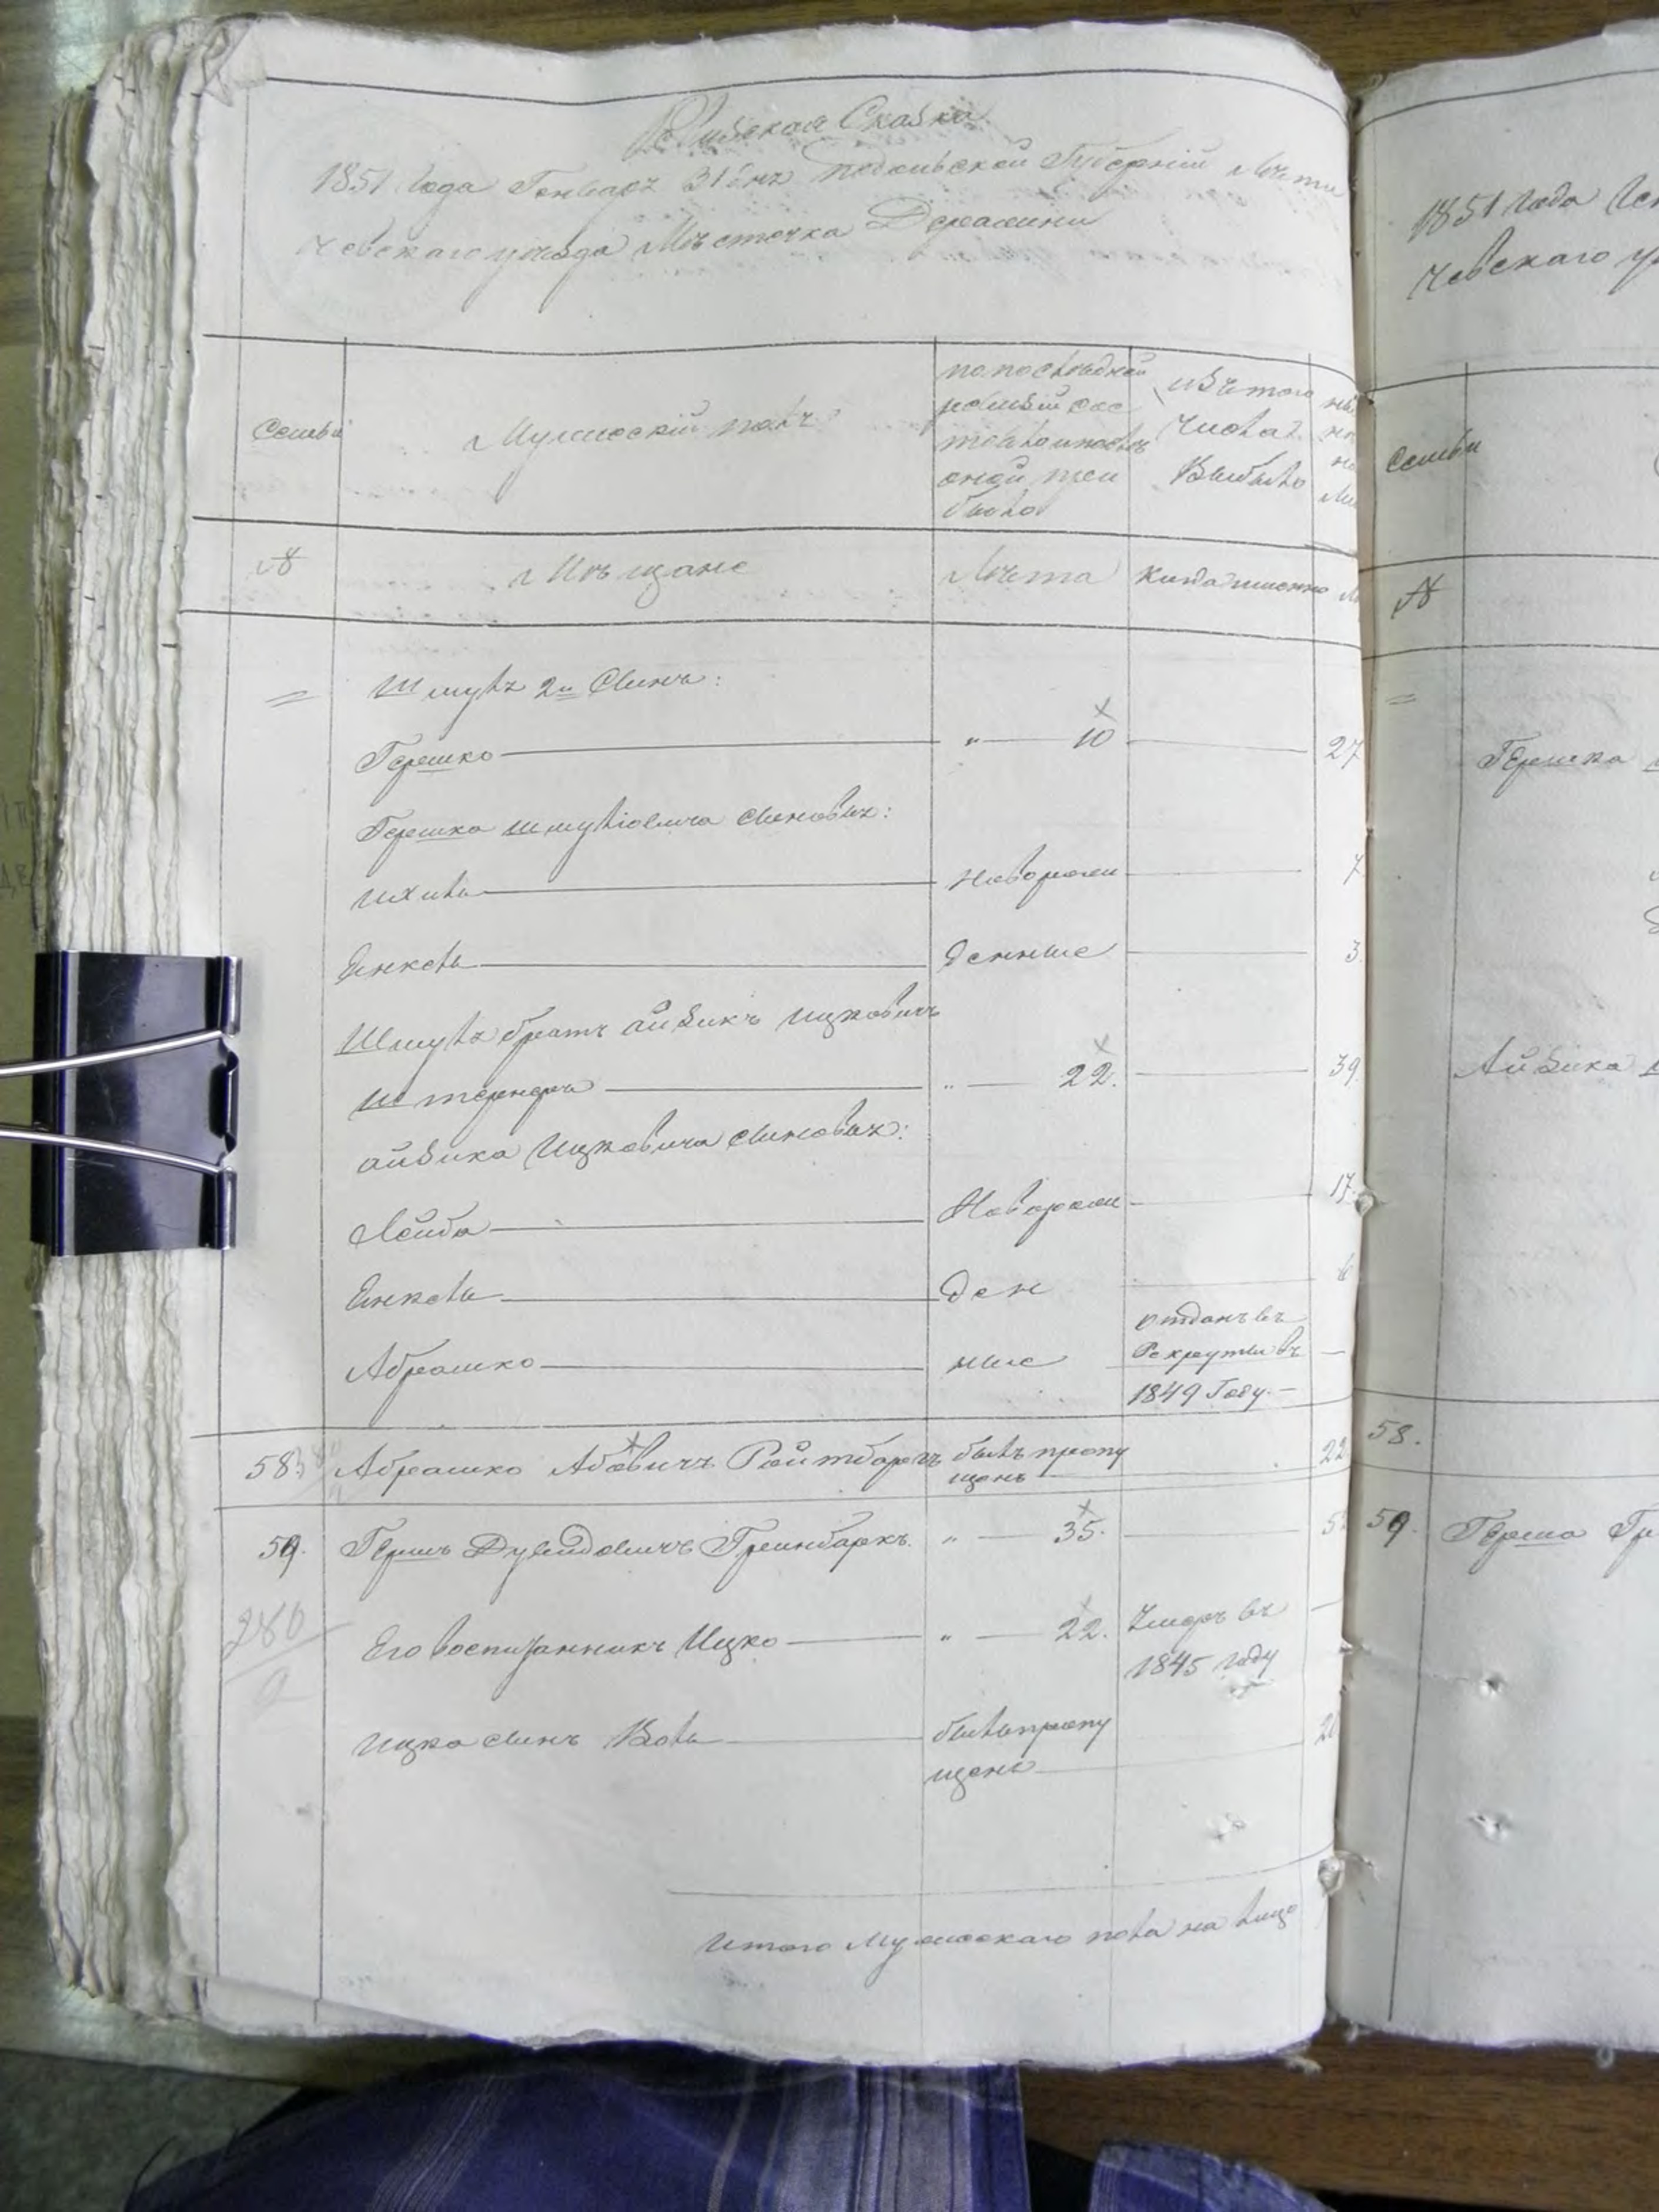 Ревизская Сказка
1851 Года Генваря 31 дня Подольской Губерніи Лети
чевскаго уезда Местечка Деражни
Семьи
Мужескій полъ
по последней
ревизіи сос
тояло и после
оной при
было
изъ того
Числа
Выбыло
№
Мещане
Лета
Когда именно
Шмуля 2й Сынъ:
Гершко " 10 27
Гершка Шмуліовича сыновья:
Ихиль Новорож 7
Янкель денные 3
Шмуля братъ Айзикъ Ицковичъ
Штернеръ " 22. 39.
Айзика Ицковича сыновья:
Лейба Новорож 17.
Янкель ден
Абрашко ные
отданъ въ
Рекруты въ
1849 Году.
58. Абрашко Абовичъ Ройтбаргъ былъ пропу 22
щенъ
59. Гершъ Дувидовичъ Гринбаркъ. " 35.
280
Его воспитанникъ Ицко " 22. Умеръ въ
1845 году
Ицка сынъ Воль былъ пропу
щенъ
Итого Мужескаго пола на лицо
1851 Года Ген
чевскаго у
Семьи
№
Гершка
Айзика
58.
59. Герша Гр